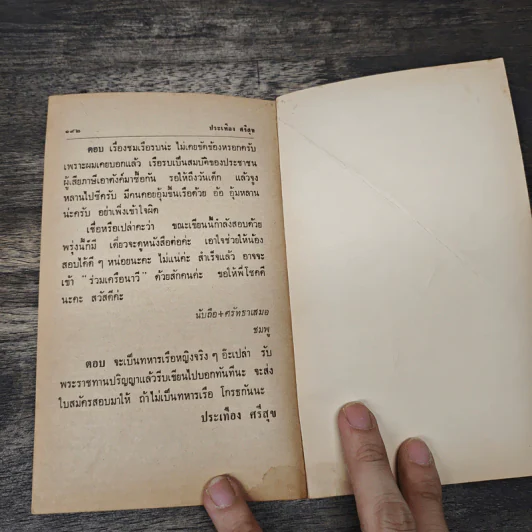 ๑๙๒ ประเทือง ศรีสุข
ตอบ เรื่องชมเรือรบน่ะ ไม่เคยขัดข้องหรอกครับ
เพราะผมเคยบอกแล้ว เรือรบเป็นสมบัติของประชาชน
ผู้เสียภาษีเอาตังค์มาซื้อกัน รอให้ถึงวันเด็ก แล้วจูง
หลานไปซีครับ มีคนคอยอุ้มขึ้นเรือด้วย อ้อ อุ้มหลาน
น่ะครับ อย่าเพิ่งเข้าใจผิด
เชื่อหรือเปล่าคะว่า ขณะเขียนนี้กำลังสอบด้วย
พรุ่งนี้ก็มี เดี๋ยวจะดูหนังสือต่อค่ะ เอาใจช่วยให้น้อง
สอบได้ดี ๆ หน่อยนะคะ ไม่แน่ค่ะ สำเร็จแล้ว อาจจะ
เข้า “ร่วมเครือนาวี” ด้วยสักคนค่ะ ขอให้พี่โชคดี
นะคะ สวัสดีค่ะ
นับถือ+ศรัทธาเสมอ
ชมพู
ตอบ จะเป็นทหารเรือหญิงจริง ๆ อ๊ะเปล่า รับ
พระราชทานปริญญาแล้วรีบเขียนไปบอกทันทีนะ จะส่ง
ใบสมัครสอบมาให้ ถ้าไม่เป็นทหารเรือ โกรธกันนะ
ประเทือง ศรีสุข